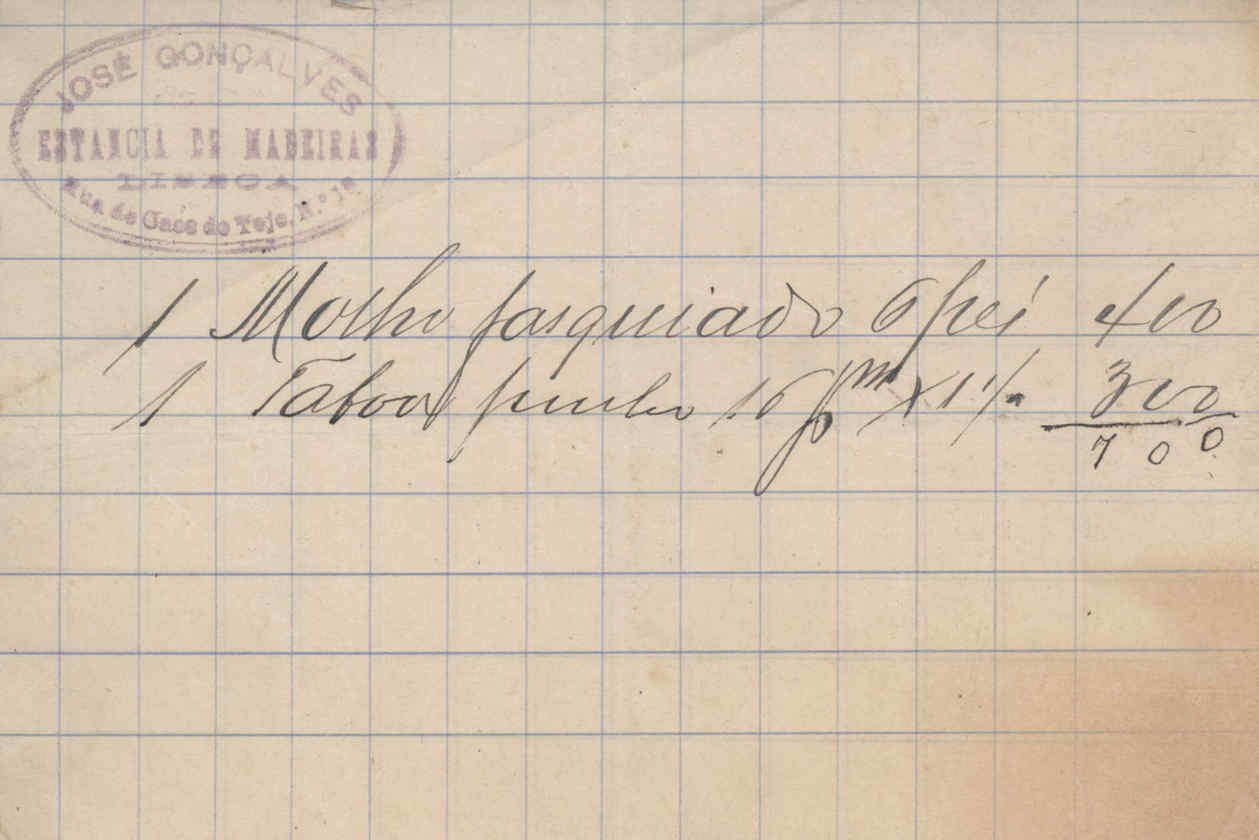 JOSÉ GONÇALVES
ESTANCIA DE MADEIRAS
LISBOA
Rua do Caes do Tejo, N.º
1 Molho fasquiado 6 pés 400
1 Taboa pinho 16 pm x 1 300
700